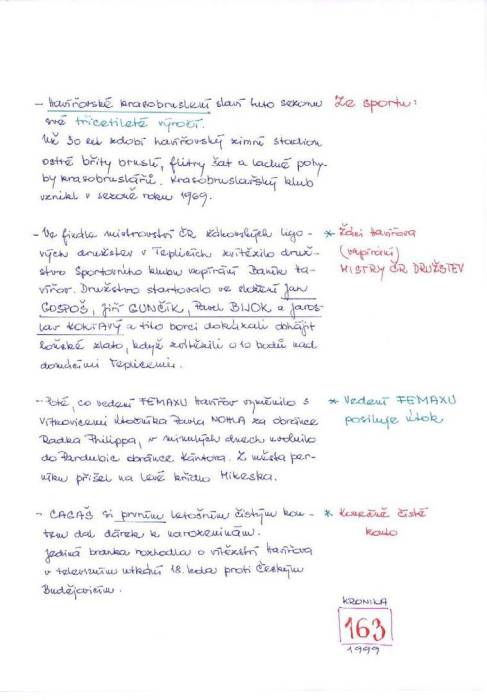 - Havířovské krasobruslení slaví tuto sezonu
své třicetileté výročí.
Už 30 let zdobí havířovský zimní stadion
ostré břity bruslí, flitry šat a ladné pohy-
by krasobruslařů. Krasobruslařský klub
vznikl v sezoně roku 1969.
Ze sportu:
- Ve finále mistrovství ČR žákovských ligo-
vých družstev v Teplicích zvítězilo druž-
stvo Sportovního klubu vzpírání Baník Ha-
vířov. Družstvo startovalo ve složení Jan
GOSPOŠ, Jiří GUNČÍK, Pavel BIJOK a Jaros-
lav KOKTAVÝ a tito borci dokázali obhájit
loňské zlato, když zvítězili o 10 bodů nad
domácími Teplicemi.
* Žáci Havířova
(vzpírání)
MISTRY ČR DRUŽSTEV
- Poté, co vedení FEMAXU Havířov vyměnilo s
Vítkovicemi útočníka Pavla NOHLA za obránce
Radka Philippa, v minulých dnech uvolnilo
do Pardubic obránce Kántora. Z města per-
níku přišel na levé křídlo Mikeska.
* Vedení FEMAXU
posiluje útok
- CAGAŠ si prvním letošním čistým kon-
tem dal dárek k narozeninám.
Jediná branka rozhodla o vítězství Havířova
v televizním utkání 18. kola proti Českým
Budějovicím.
* Konečně čisté
konto
KRONIKA
163
1999